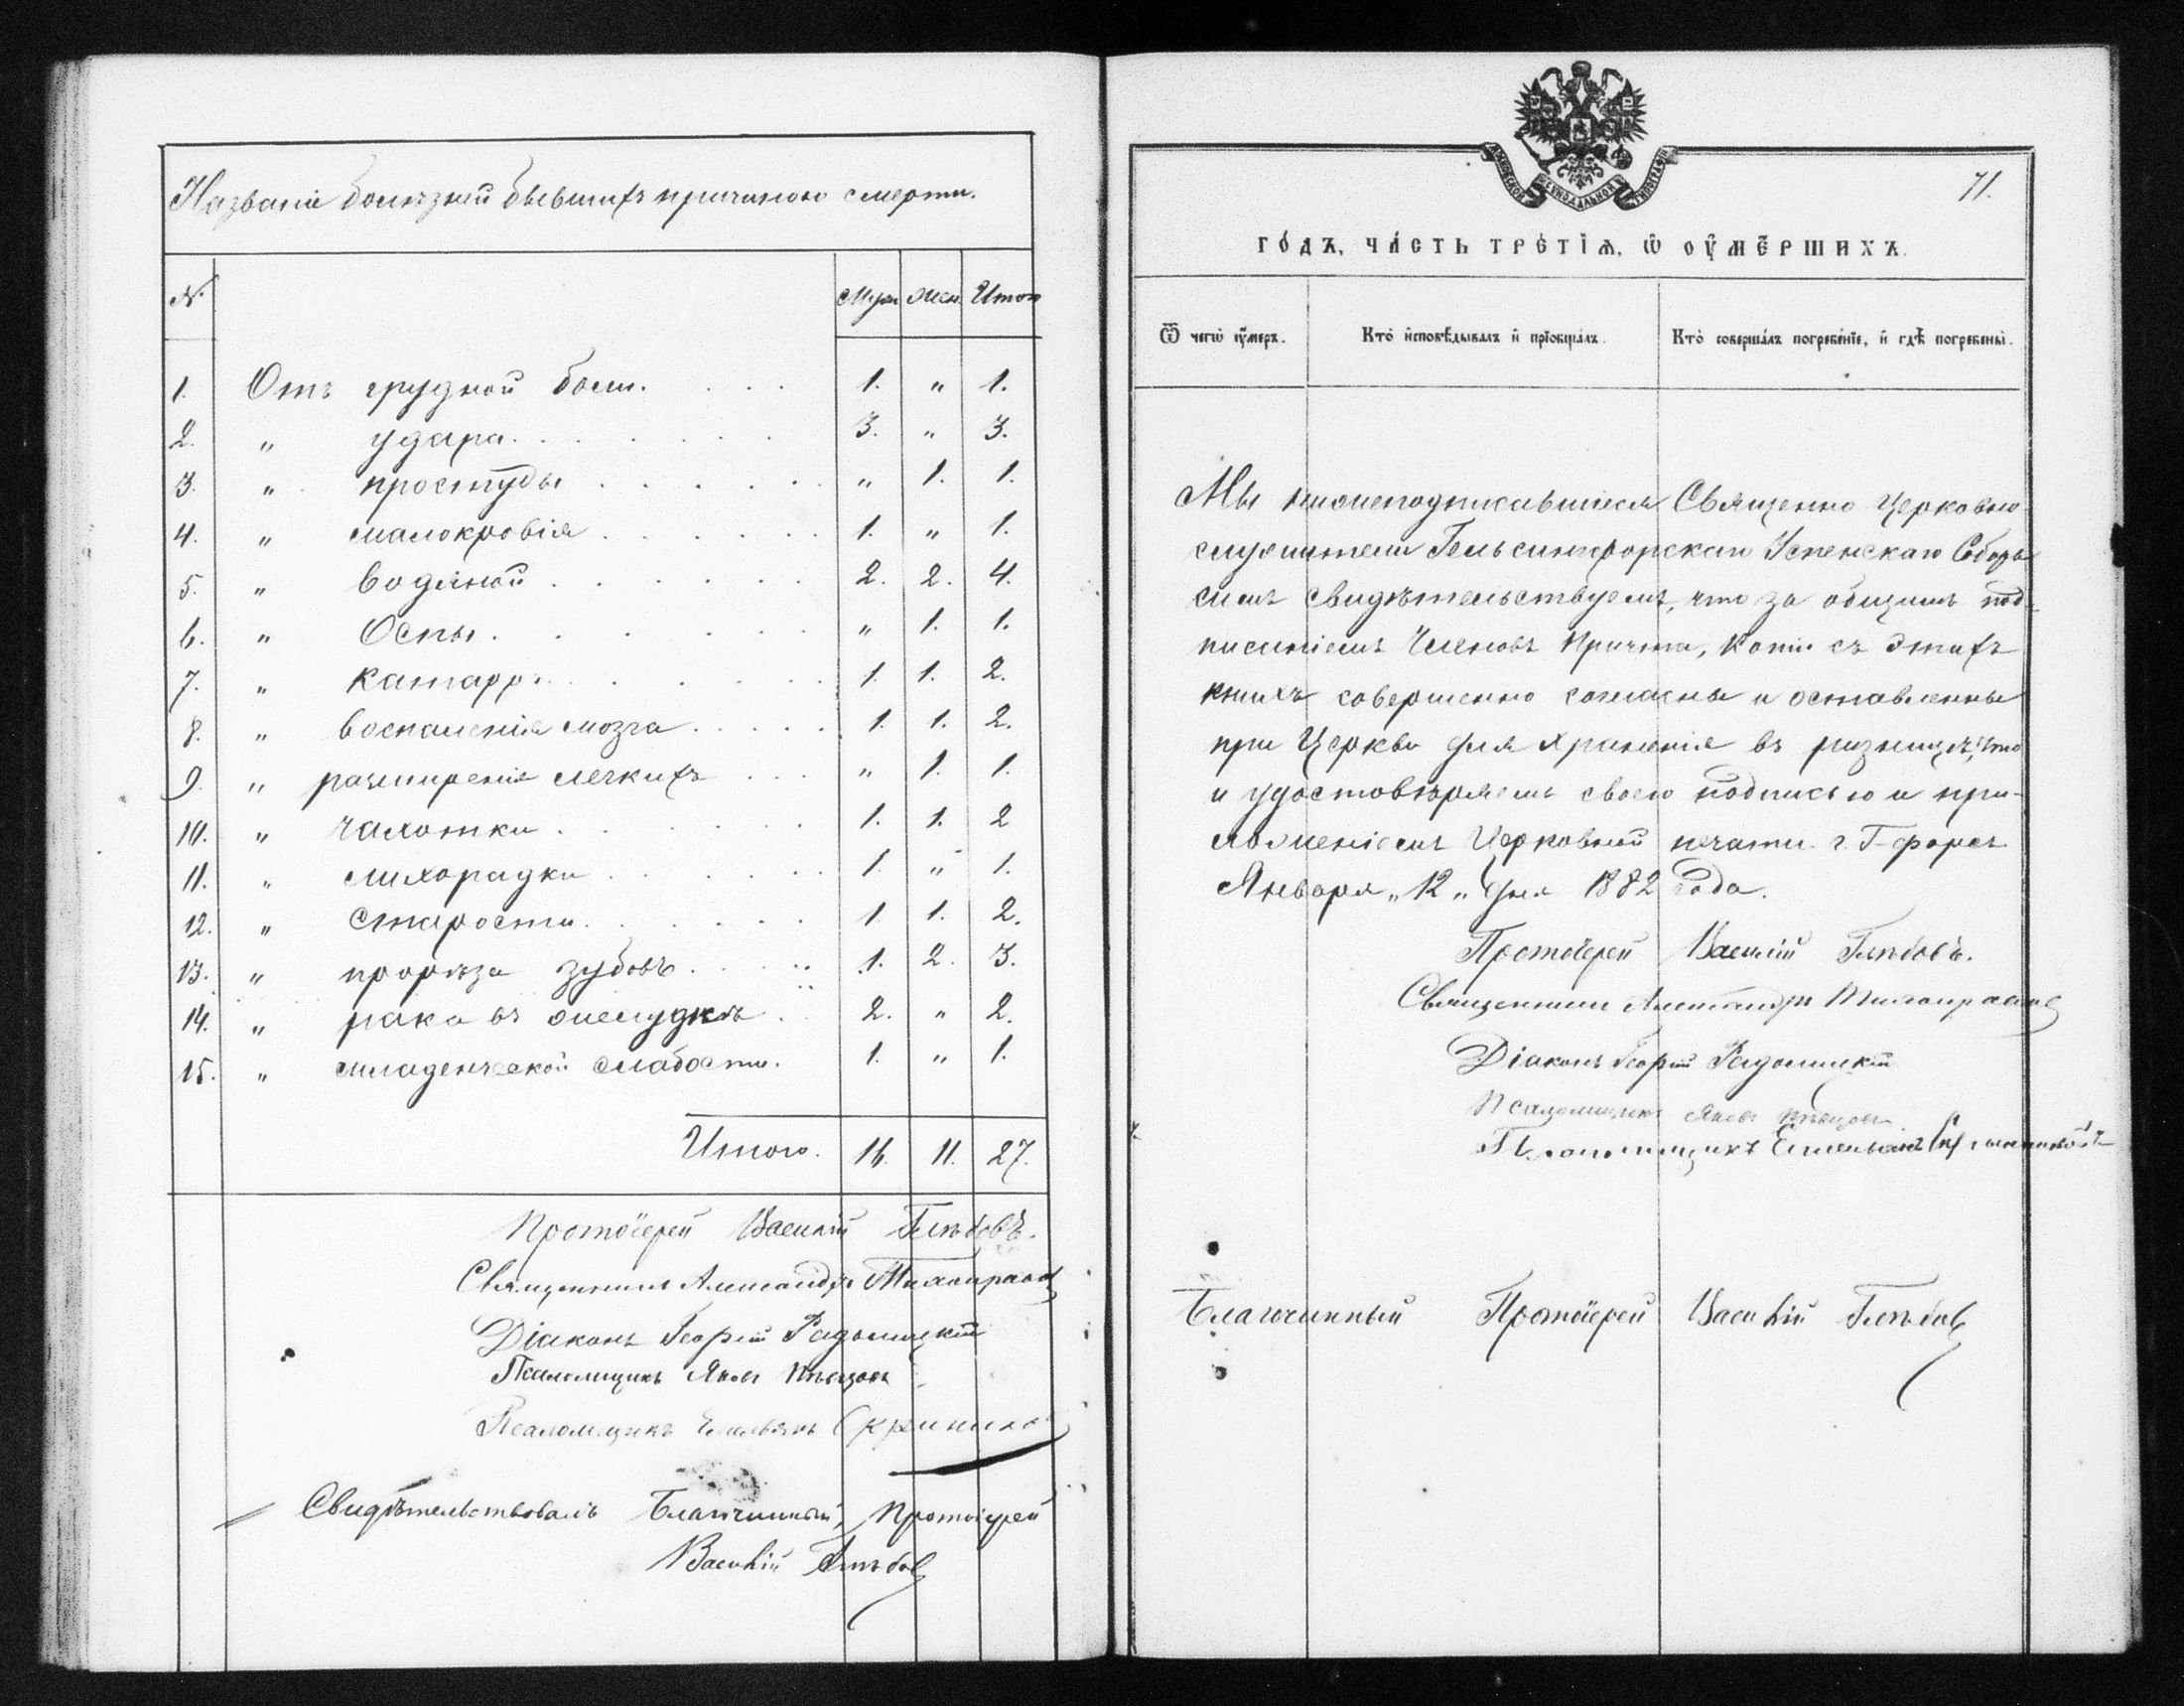 Названіе болѣзней бывшихъ причиною смерти.
№ Муж Жен. Итого
1. Отъ грудной боли. 1. „ 1.
2. „ удара. 3. „ 3.
3. „ простуды „ 1. 1.
4. „ малокровія 1. „ 1.
5. „ водяной 2. 2. 4.
6. „ Оспы. „ 1. 1.
7. „ катарръ 1. 1. 2.
8. „ воспаленія мозга 1. 1. 2.
9. „ расширенія легкихъ „ 1. 1.
10. „ чахотки 1. 1. 2
11. „ лихорадки 1. „ 1.
12. „ старости 1. 1. 2.
13. „ прорѣза зубовъ 1. 2. 3.
14. „ рака въ желудкѣ 2. „ 2.
15. „ младенческой слабости. 1. „ 1.
Итого. 16. 11. 27.
Протоіерей Василій Глѣбовъ.
Священникъ Александръ
Діаконъ Георгій
Псаломщикъ Яковъ Пѣвцовъ
Псаломщикъ Емельянъ
Свидѣтельствовалъ Благочинный, Протоіерей
Василій Глѣбовъ
71.
МОСКОВСКОЙ СѴНОДАЛЬНОЙ ТИПОГРАФІИ
го́дъ, ча́сть тре́тїѧ, ѡ҆ ᲂу҆ме́ршихъ.
Ѿ чегѡ̀ ᲂу҆́меръ. Кто̀ и҆сповѣ́дывалъ и҆ прїѡбща́лъ. Кто̀ соверша́лъ погребе́нїе, и҆ гдѣ̀ погребены̀.
Мы нижеподписавшіеся Священно Церковно
служители Гельсингфорскаго Успенскаго Собора
симъ свидѣтельствуемъ, что за общимъ под-
писаніемъ Членовъ Причта, копіи съ этихъ
книхъ совершенно согласны и оставленны
при Церкви для храненія въ ризницѣ, что
и удостовѣряемъ своею подписью и при-
ложеніемъ Церковной печати. г. Г-форсъ
Января „12„ дня 1882 года.
Протоіерей Василій Глѣбовъ.
Священникъ Александръ
Діаконъ Георгій
Псаломщикъ Яковъ Пѣвцовъ
Псаломщикъ Емельянъ
Благочинный Протоіерей Василій Глѣбовъ